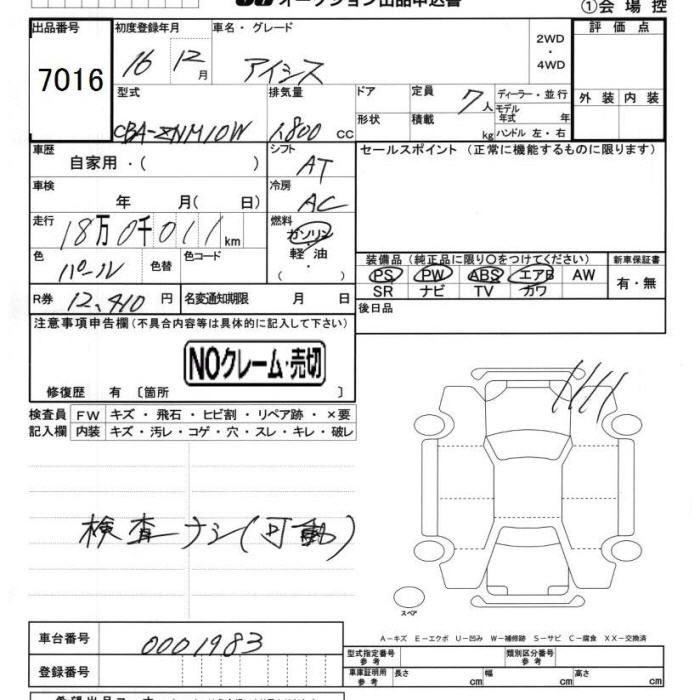 オークション出品申込書
①会 場 控
出品番号 初度登録年月 車名・グレード 2WD ・ 4WD 評 価 点
7016 16 12月 アイシス
外 装 内 装
型式 排気量 ドア 定員 7人 ディーラー・並行
モデル年式 年
CBA-ZNM10W 1.800 cc 形状 積載 kg ハンドル 左・右
車歴 シフト セールスポイント (正常に機能するものに限ります)
自家用・( ) AT
車検 冷房
年 月( 日) AC
走行 18万0千011km 燃料
ガソリン
軽 油
・( )
色 色替 色コード
パール
装備品 (純正品に限り○をつけてください) 新車保証書
PS PW ABS エアB AW 有・無
SR ナビ TV カワ
R券 12,410円 名変通知期限 月 日 後日品
注意事項申告欄(不具合内容等は具体的に記入して下さい)
NOクレーム・売切
修復歴 有 〔箇所 〕
検査員 FW キズ・飛石・ヒビ割・リペア跡・×要
記入欄 内装 キズ・汚レ・コゲ・穴・スレ・キレ・破レ
検査ナシ(可動)
スペア
A-キズ E-エクボ U-凹み W-補修跡 S-サビ C-腐食 XX-交換済
車台番号 0001983
型式指定番号 参 考 類別区分番号 参 考
登録番号
車庫証明用 参 考 長さ cm 幅 cm 高さ cm
希望出品コーナー